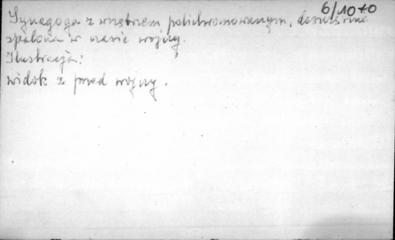 6/1070
Synagoga z wnętrzem polichromowanym, doszczętnie
spalona w czasie wojny.
Ilustracja:
widok z przed wojny.